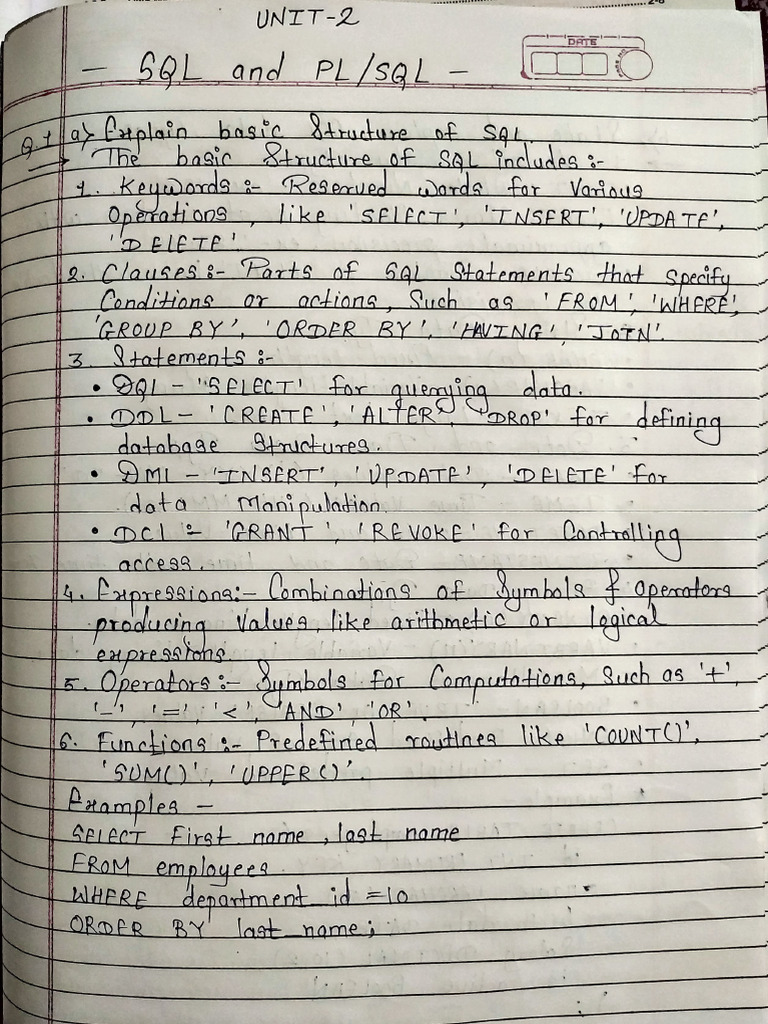 UNIT-2
DATE
- SQL and PL/SQL -
Q.1 a) Explain basic Structure of SQL.
The basic Structure of SQL includes :-
1. Keywords :- Reserved words for Various
Operations, like 'SELECT', 'INSERT', 'UPDATE',
'DELETE'.
2. Clauses :- Parts of SQL Statements that Specify
Conditions or actions, Such as 'FROM', 'WHERE',
'GROUP BY', 'ORDER BY', 'HAVING', 'JOIN'.
3. Statements :-
• DQL - 'SELECT' for querying data.
• DDL - 'CREATE', 'ALTER', 'DROP' for defining
database Structures.
• DML - 'INSERT', 'UPDATE', 'DELETE' For
data Manipulation
• DCL :- 'GRANT', 'REVOKE' for Controlling
access.
4. Expressions:- Combinations of Symbols & operators
producing Values, like arithmetic or logical
expressions
5. Operators :- Symbols for Computations, Such as '+',
'-', '=', '<', 'AND', 'OR'.
6. Functions :- Predefined routines like 'COUNT()',
'SUM()', 'UPPER()'
Examples -
SELECT First name, last name
FROM employees
WHERE department id = 10
ORDER BY last name;